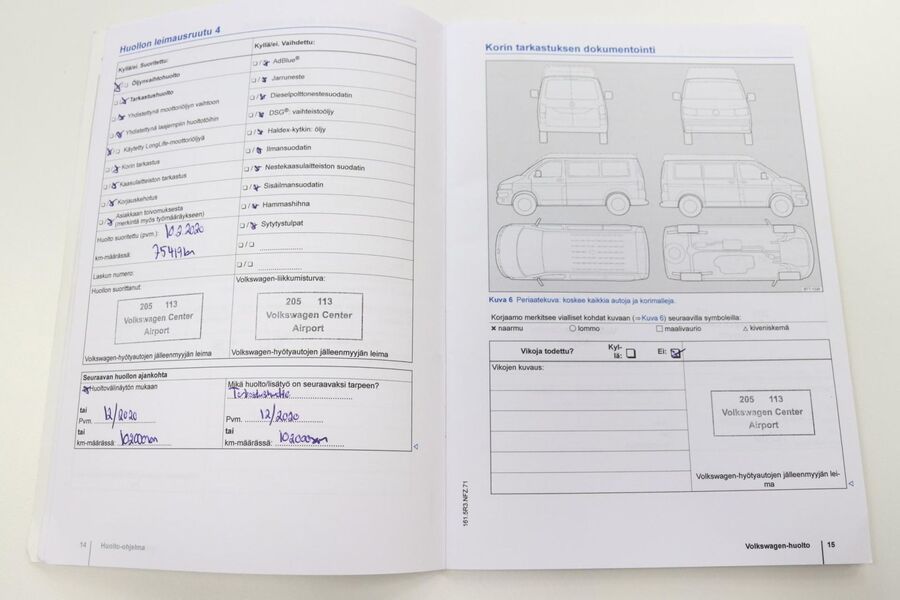 Huollon leimausruutu 4
Kyllä/ei. Suoritettu:
Öljynvaihtohuolto
Tarkastushuolto
Yhdistettynä moottoriöljyn vaihtoon
Yhdistettynä laajempiin huoltotöihin
Käytetty LongLife-moottoriöljyä
Korin tarkastus
Kaasulaitteiston tarkastus
Korjauskehotus
Asiakkaan toivomuksesta
(merkintä myös työmääräykseen)
Huolto suoritettu (pvm.): 10.2.2020
km-määrässä: 75419km
Laskun numero:
Huollon suorittanut:
205 113
Volkswagen Center
Airport
Volkswagen-hyötyautojen jälleenmyyjän leima
Kyllä/ei. Vaihdettu:
AdBlue®
Jarruneste
Dieselpolttonestesuodatin
DSG®: vaihteistoöljy
Haldex-kytkin: öljy
Ilmansuodatin
Nestekaasulaitteiston suodatin
Sisäilmansuodatin
Hammashihna
Sytytystulpat
Volkswagen-liikkumisturva:
205 113
Volkswagen Center
Airport
Volkswagen-hyötyautojen jälleenmyyjän leima
Seuraavan huollon ajankohta
Huoltovälinäytön mukaan
tai
Pvm. 12/2020
tai
km-määrässä: 102000km
Mikä huolto/lisätyö on seuraavaksi tarpeen?
Tarkastushuolto
Pvm. 12/2020
tai
km-määrässä: 102000km
14 Huolto-ohjelma
Korin tarkastuksen dokumentointi
Kuva 6 Periaatekuva: koskee kaikkia autoja ja korimalleja.
Korjaamo merkitsee vialliset kohdat kuvaan (⇒Kuva 6) seuraavilla symboleilla:
× naarmu ○ lommo □ maalivaurio △ kiveniskemä
Vikoja todettu? Kyl-
lä: Ei:
Vikojen kuvaus:
205 113
Volkswagen Center
Airport
Volkswagen-hyötyautojen jälleenmyyjän lei-
ma
161.5R3.NFZ.71
Volkswagen-huolto 15